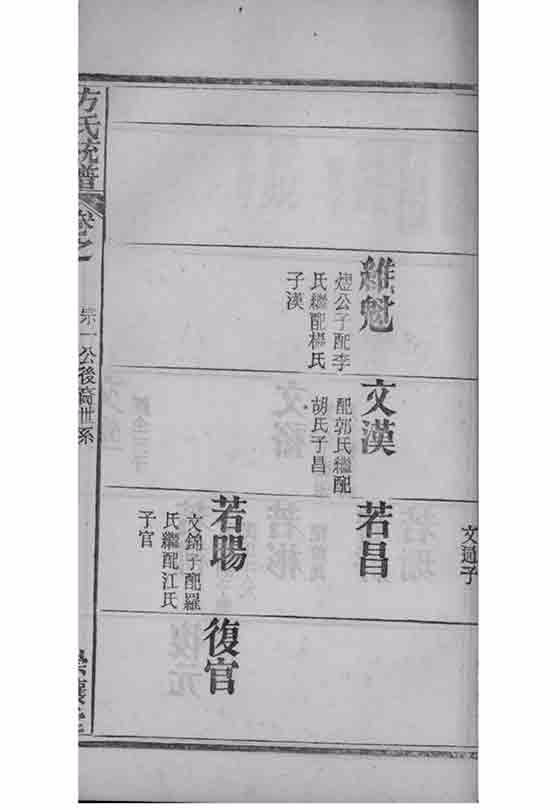 文通子
維魁
煜公子配李
氏繼配楊氏
子漢
文漢
配郭氏繼配
胡氏子昌
若昌
若暘
文錦子配羅
氏繼配江氏
子官
復官
方氏統譜
卷之
崇一公後裔世系